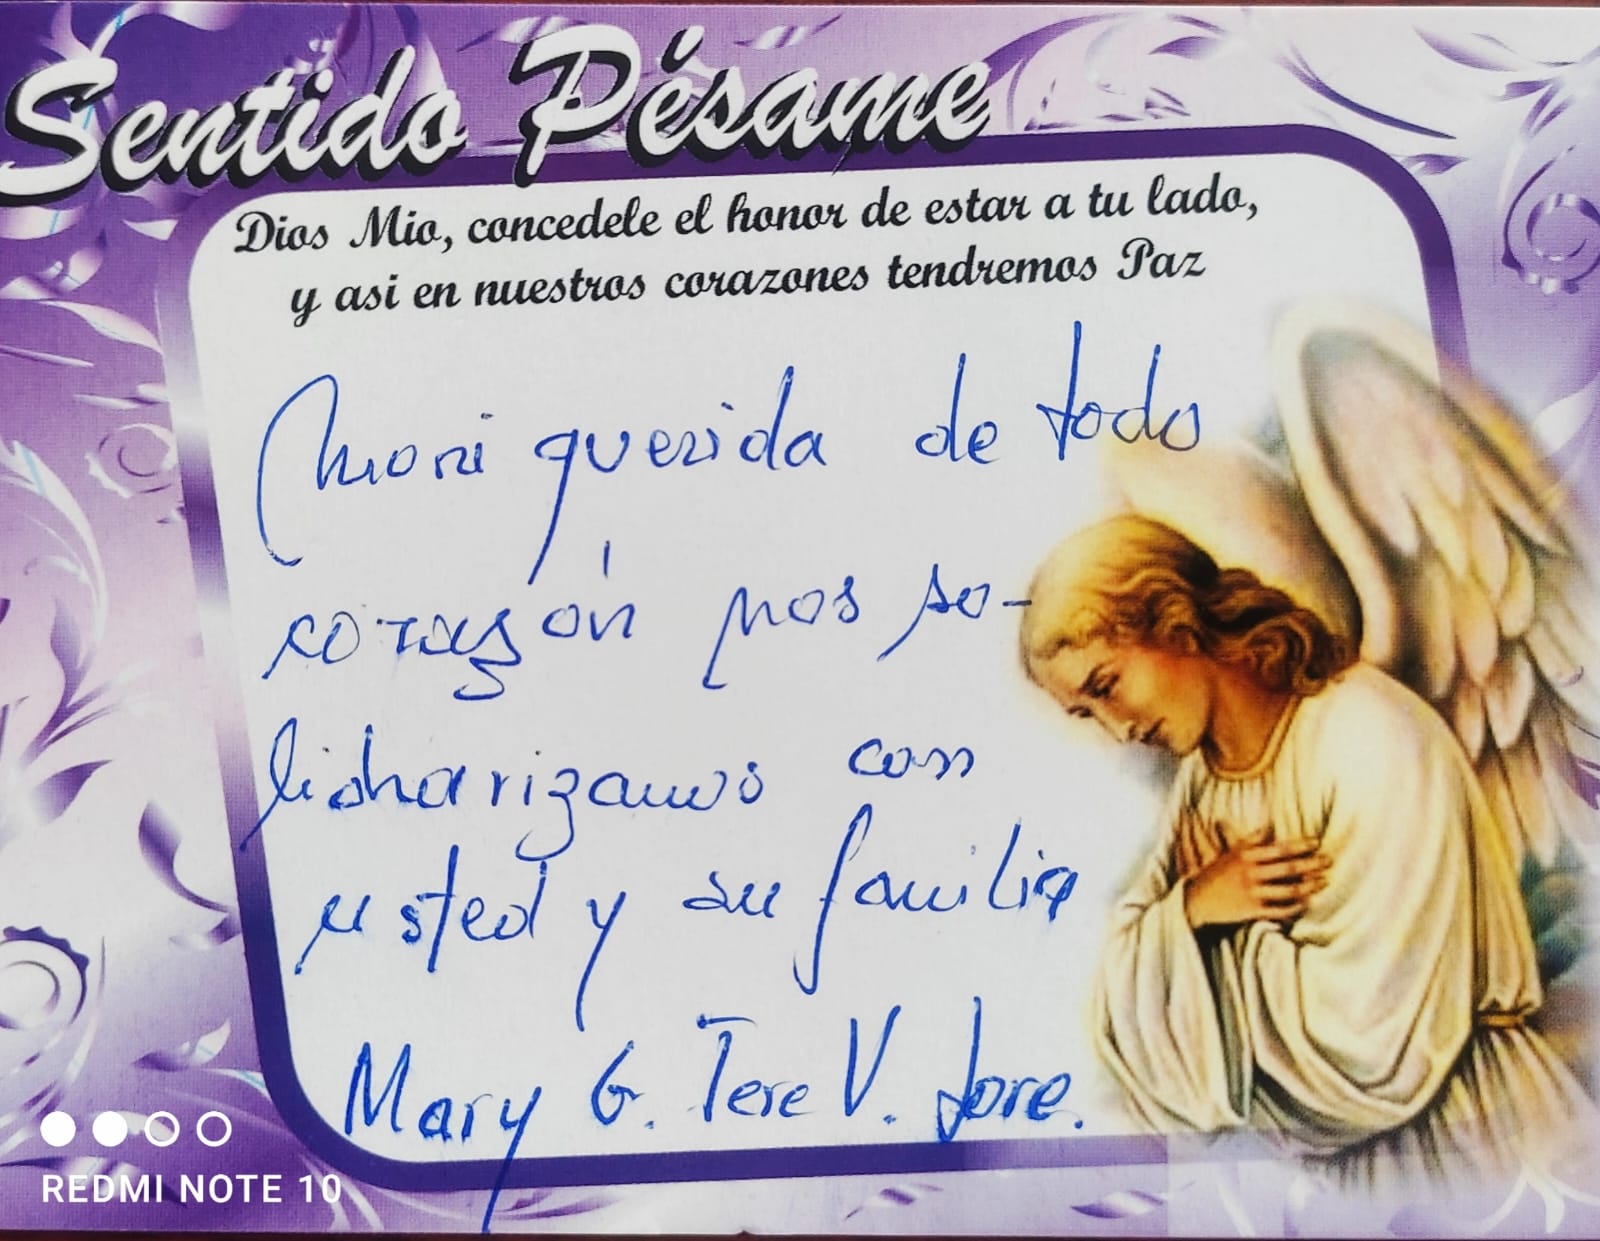 Sentido Pésame
Dios Mio, concedele el honor de estar a tu lado,
y asi en nuestros corazones tendremos Paz
Moni querida de todo
corazón nos so-
lidharizamos con
usted y su familia
Mary G. Tere V. Lore.
REDMI NOTE 10